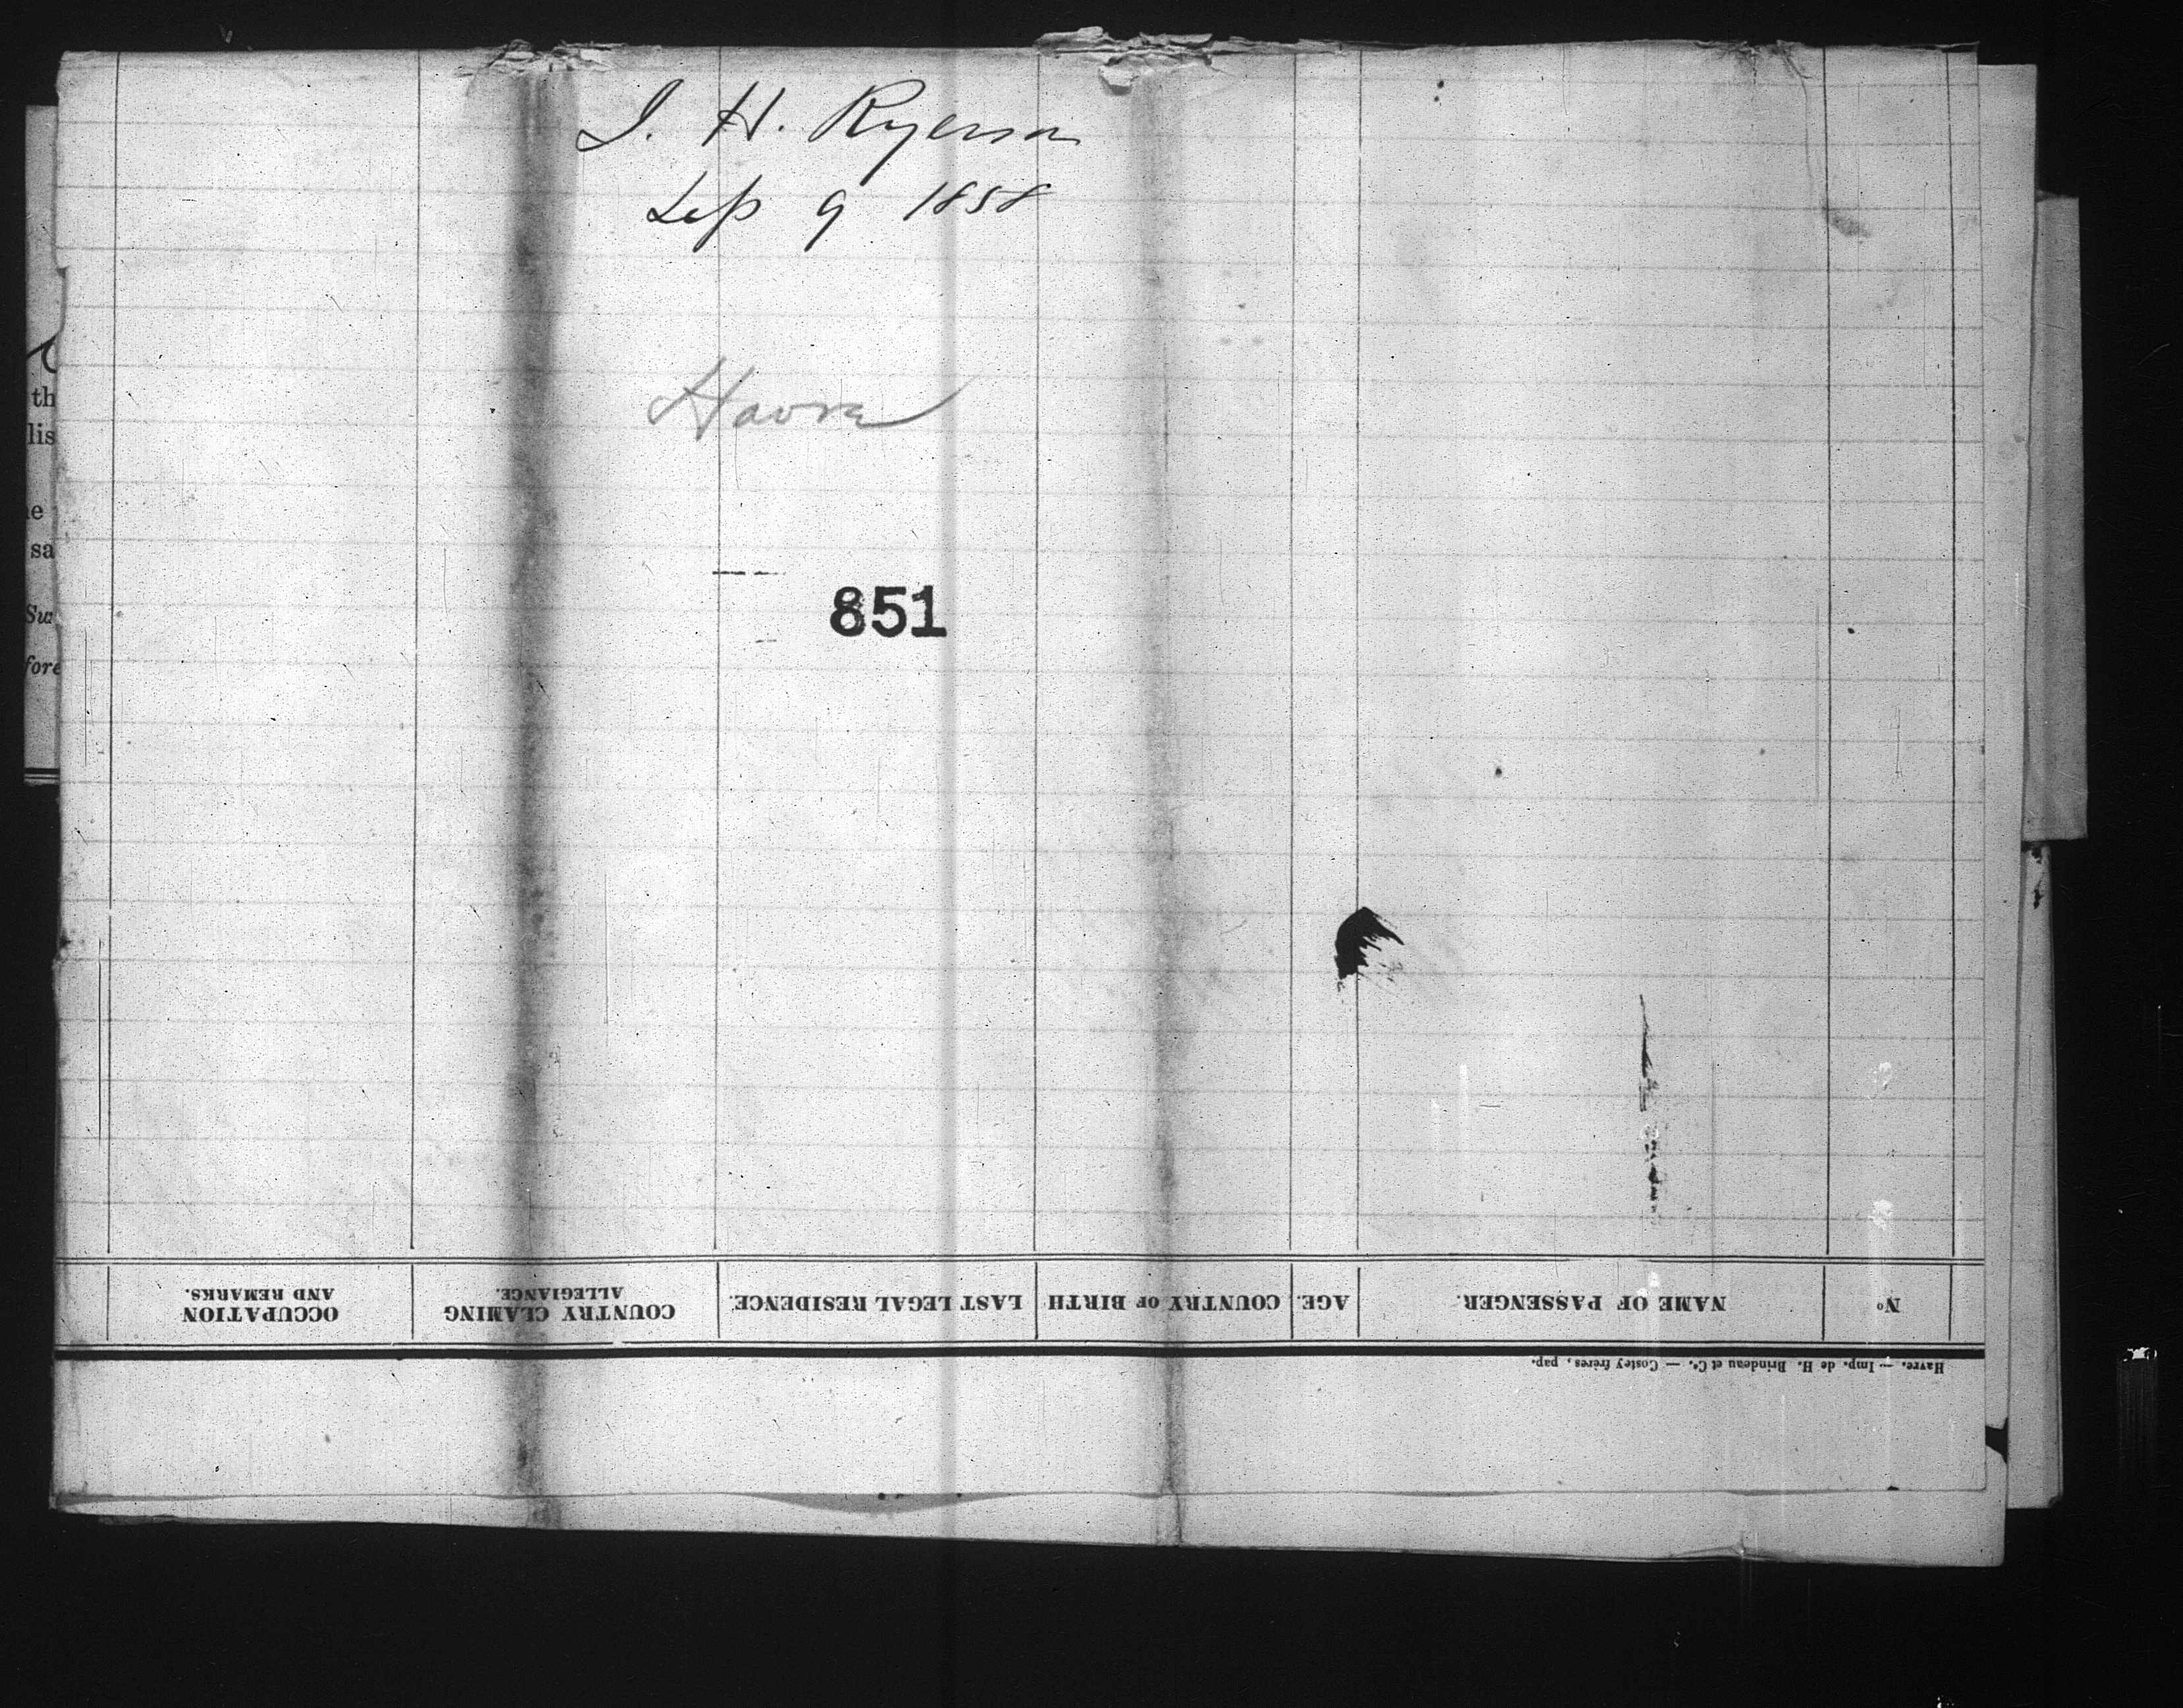 J. H. Ryerson
Sep 9 1858
Havre
851
th
lis
e
sa
Su
fore
Nº
NAME OF PASSENGER.
AGE.
COUNTRY OF BIRTH
LAST LEGAL RESIDENCE.
COUNTRY CLAMING
ALLEGIANCE.
OCCUPATION
AND REMARKS.
Havre. — Imp. de H. Brindeau et Cᵉ. — Costey frères, pap.